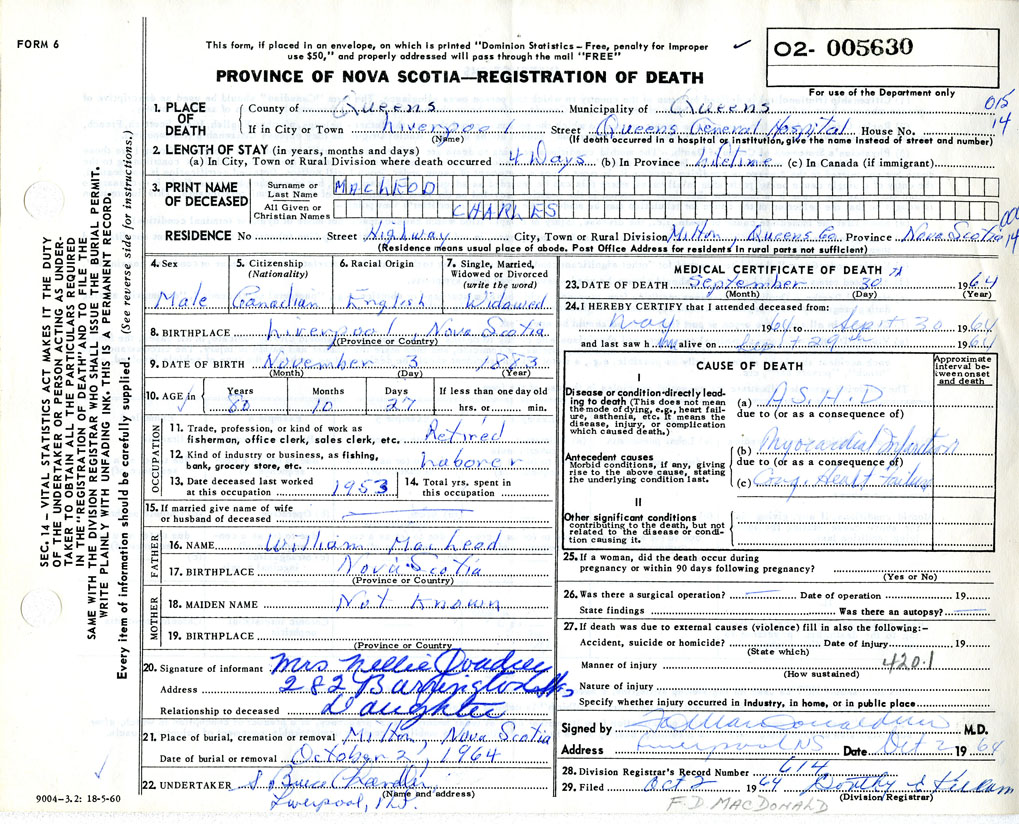 FORM 6
This form, if placed in an envelope, on which is printed "Dominion Statistics – Free, penalty for improper
use $50," and properly addressed will pass through the mail "FREE"
02- 005630
PROVINCE OF NOVA SCOTIA—REGISTRATION OF DEATH
For use of the Department only
015
14
1. PLACE OF DEATH
County of Queens Municipality of Queens
If in City or Town Liverpool Street Queens General Hospital House No.
(Name) (If death occurred in a hospital or institution, give the name instead of street and number)
2. LENGTH OF STAY (in years, months and days)
(a) In City, Town or Rural Division where death occurred 4 Days (b) In Province Lifetime (c) In Canada (if immigrant)
3. PRINT NAME OF DECEASED
Surname or Last Name MacLEOD
All Given or Christian Names CHARLES
RESIDENCE No Street Highway City, Town or Rural Division Milton, Queens Co. Province Nova Scotia
14
(Residence means usual place of abode. Post Office Address for residents in rural parts not sufficient)
4. Sex
Male
5. Citizenship
(Nationality)
Canadian
6. Racial Origin
English
7. Single, Married, Widowed or Divorced
(write the word)
Widowed
8. BIRTHPLACE Liverpool, Nova Scotia
(Province or Country)
9. DATE OF BIRTH November 3 1883
(Month) (Day) (Year)
10. AGE in
Years Months Days If less than one day old
80 10 27 hrs. or min.
OCCUPATION
11. Trade, profession, or kind of work as
fisherman, office clerk, sales clerk, etc. Retired
12. Kind of industry or business, as fishing,
bank, grocery store, etc. Laborer
13. Date deceased last worked
at this occupation 1953
14. Total yrs. spent in
this occupation
15. If married give name of wife
or husband of deceased
FATHER
16. NAME William MacLeod
17. BIRTHPLACE Nova Scotia
(Province or Country)
MOTHER
18. MAIDEN NAME Not Known
19. BIRTHPLACE
(Province or Country)
20. Signature of informant Mrs Nellie
Address 282 Barrington St Hfx
Relationship to deceased Daughter
21. Place of burial, cremation or removal Milton, Nova Scotia
Date of burial or removal October 2, 1964
22. UNDERTAKER S. Bruce Chandler
(Name and address)
Liverpool, N.S.
9004–3.2: 18-5-60
SEC. 14 – VITAL STATISTICS ACT MAKES IT THE DUTY
OF THE UNDERTAKER OR PERSON ACTING AS UNDER-
TAKER TO OBTAIN ALL THE PARTICULARS REQUIRED
IN THE "REGISTRATION OF DEATH" AND TO FILE THE
SAME WITH THE DIVISION REGISTRAR WHO SHALL ISSUE THE BURIAL PERMIT.
WRITE PLAINLY WITH UNFADING INK. THIS IS A PERMANENT RECORD.
Every item of information should be carefully supplied. (See reverse side for instructions.)
MEDICAL CERTIFICATE OF DEATH
23. DATE OF DEATH September 30 1964
(Month) (Day) (Year)
24. I HEREBY CERTIFY that I attended deceased from:
May 1964 to Sept 30 1964
and last saw him alive on Sept 29th 1964
CAUSE OF DEATH
Approximate interval between onset and death
I
Disease or condition directly lead-
ing to death (This does not mean
the mode of dying, e.g., heart fail-
ure, asthenia, etc. It means the
disease, injury, or complication
which caused death.)
(a) A.S.H.D
due to (or as a consequence of)
Antecedent causes
Morbid conditions, if any, giving
rise to the above cause, stating
the underlying condition last.
(b) Myocardial Infarction
due to (or as a consequence of)
(c) Cong. Heart Failure
II
Other significant conditions
contributing to the death, but not
related to the disease or condi-
tion causing it.
25. If a woman, did the death occur during
pregnancy or within 90 days following pregnancy?
(Yes or No)
26. Was there a surgical operation? Date of operation 19
State findings Was there an autopsy?
27. If death was due to external causes (violence) fill in also the following:–
Accident, suicide or homicide? Date of injury 19
(State which)
Manner of injury 420.1
(How sustained)
Nature of injury
Specify whether injury occurred in Industry, in home, or in public place
Signed by F.D. MacDonald M.D.
Address Liverpool NS Date Oct 2 1964
28. Division Registrar's Record Number 614
29. Filed Oct 2 1964 Dorothy
(Division/Registrar)
F. D. MACDONALD